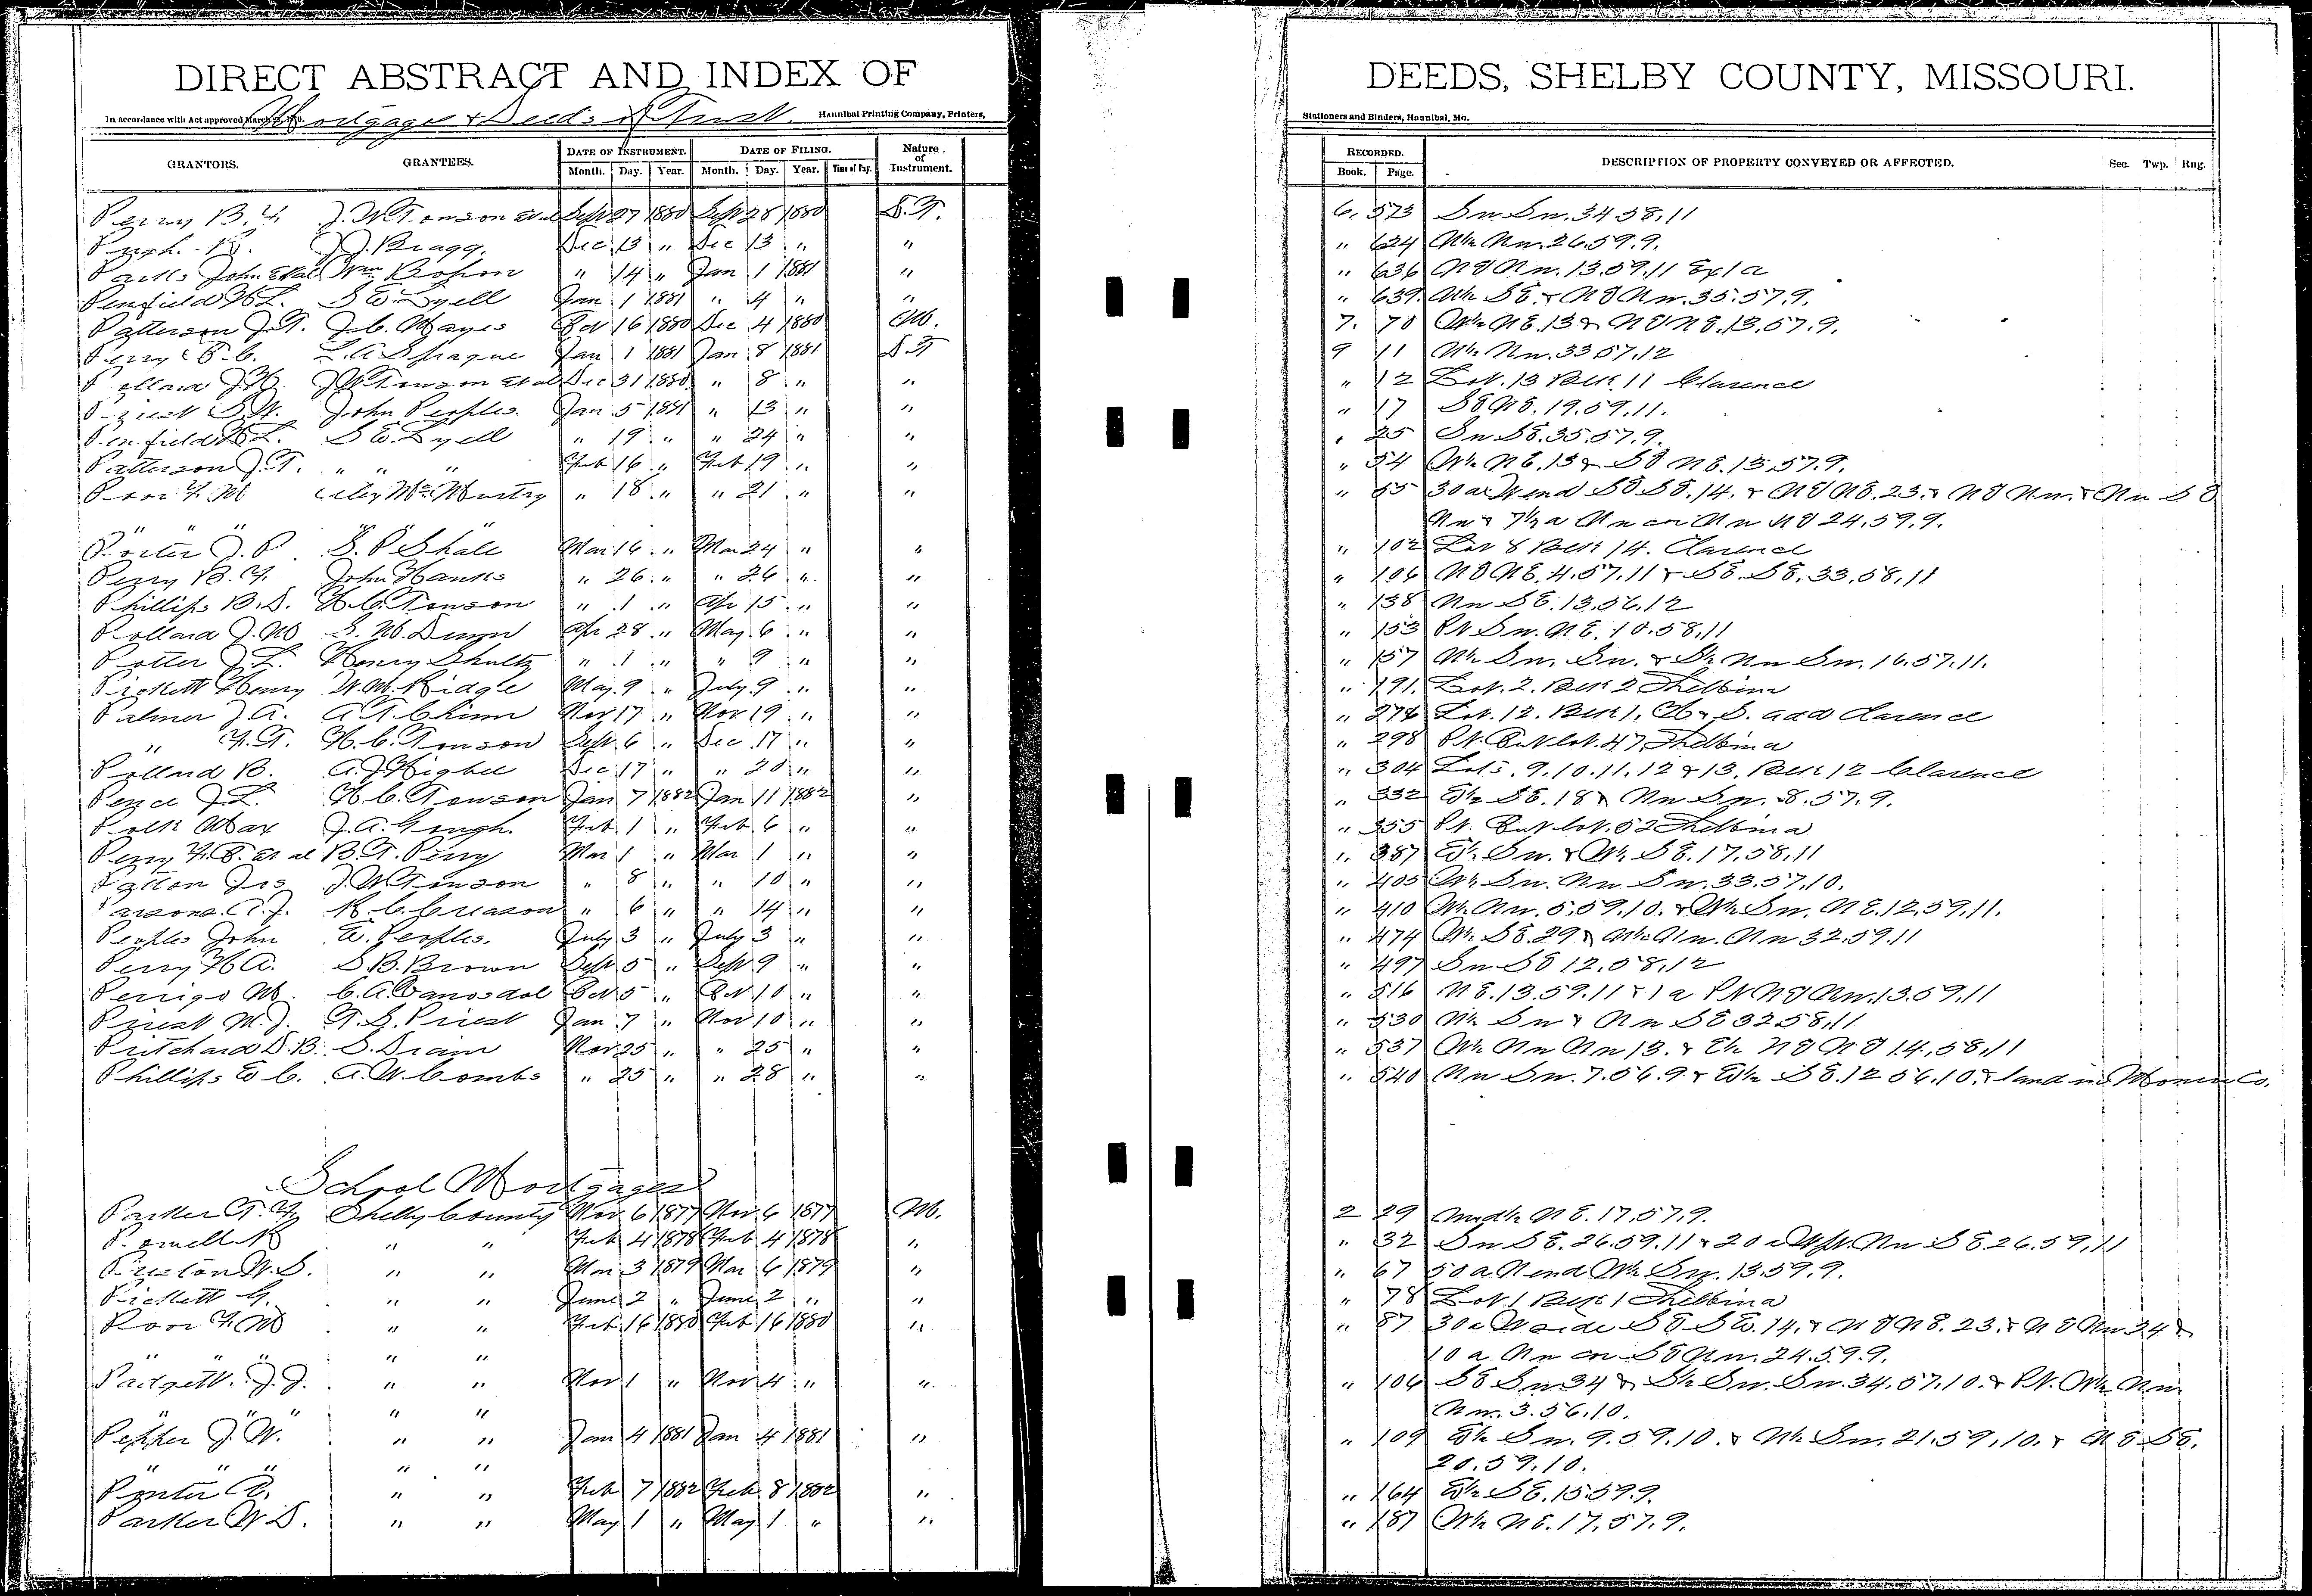 DIRECT ABSTRACT AND INDEX OF
DEEDS, SHELBY COUNTY, MISSOURI.
In accordance with Act approved March 25, 1870.
Mortgages & Deeds of Trust.
Hannibal Printing Company, Printers,
Stationers and Binders, Hannibal, Mo.
GRANTORS. GRANTEES. DATE OF INSTRUMENT. DATE OF FILING. Nature of Instrument. RECORDED. DESCRIPTION OF PROPERTY CONVEYED OR AFFECTED. Sec. Twp. Rng.
Month. Day. Year. Month. Day. Year. Time of Day. Book. Page.
Perry B. F. J. W. Towson et al Sept 27 1880 Sept 28 1880 D.T. 6. 573 Sw Sw. 34 58.11
Pugh. J. J. Bragg. Dec 13 " Dec 13 " " " 624 Nw. 26.59.9.
Parks John et al Wm " 14 " Jan 1 1881 " " 636 NE Nw. 13.59.11 Ex 1 a
Penfield L. S E. Lyell Jan 1 1881 " 4 " " " 639. SE. & NE Nw. 35.57.9.
Patterson J. T. J. C. Mayes Oct 16 1880 Dec 4 1880 M. 7. 70 W½ NE. 13 & NE NE. 13.57.9.
Perry C. L. A Sprague Jan 1 1881 Jan 8 1881 D T 9 11 Nw. 33 57.12
Pollard J. J W Towson et al Dec 31 1880 " 8 " " " 12 Lot. 13 Blk 11 Clarence
Priest S. W. John Peoples. Jan 5 1881 " 13 " " " 17 SE NE. 19.59.11.
Penfield L. S E. Lyell " 19 " " 24 " " " 25 Sw SE. 35.57.9.
Patterson J. T. " " " Feb 16 " Feb 19 " " " 54 W½ NE. 13 & SE NE. 13 57.9.
Poor F. M McMurtry " 18 " " 21 " " " 55 30 a W end SE SE. 14. & NE NE. 23. & NE Nw. & Nw SE
" " " " " " Nw & 7½ a Nw cor Nw NE 24.59.9.
Porter J. P. S. P Shale Mar 16 " Mar 24 " " " 102 Lot 8 Blk 14. Clarence
Perry B. F. John Hanks " 26 " " 26 " " " 106 NE NE. 4.57.11 & SE. SE. 33.58.11
Phillips B. D. H. C. Towson " 1 " Apr 15 " " " 138 Nw SE. 13.56.12
Pollard J. M S. M. Apr 28 " May 6 " " " 153 Pt Sw. NE. 10.58.11
Potter J. L. Henry Shultz " 1 " " 9 " " " 157 Sw. Sw. & S½ Nw Sw. 16.57.11.
Pickett Henry W. M. Ridge May 9 " July 9 " " " 191. Lot. 2. Blk 2 Shelbina
Palmer J. A. A T. Chinn Nov 17 " Nov 19 " " " 276 Lot. 12. Blk 1. & S. add Clarence
" F. T. H. C. Towson Sept 6 " Dec 17 " " " 298 Pt. Out lot. 47 Shelbina
Pollard B. A. J Highee Dec 17 " " 20 " " " 304 Lots. 9. 10. 11. 12 & 13, Blk 12 Clarence
Pence J. L. H. C. Towson Jan 7 1882 Jan 11 1882 " " 332 E½ SE. 18 & Nw Sw. 8. 57. 9.
Polk Max J. A. Gough. Feb 1 " Feb 6 " " " 355 Pt. Out lot. 52 Shelbina
Perry F. et al B. T. Perry Mar 1 " Mar 1 " " " 387 E½ Sw. & W½ SE. 17.58.11
Patton Jas J. W Towson " 8 " " 10 " " " 405 W½ Sw. Nw Sw. 33.57.10.
Parsons. A. J. R. C. " 6 " " 14 " " " 410 Nw. 5.59.10. & W½ Sw. NE. 12.59.11.
Peoples John E. Peoples. July 3 " July 3 " " " 474 W½ SE. 29 & Nw. Nw 32.59.11
Perry H A. S B. Brown Sept 5 " Sept 9 " " " 497 Sw SE 12.58.12
Perrigo M. C. A. Vanosdol Oct 5 " Oct 10 " " " 516 NE. 13.59.11 & 1 a Pt NE Nw. 13.59.11
Priest M. J. T. S. Priest Jan 7 " Nov 10 " " " 530 Sw & Nw SE 32 58.11
Pritchard D. B. S. Drain Nov 25 " " 25 " " " 537 W½ Nw Nw 13. & E½ NE NE 14.58.11
Phillips E C. A. W. Combs " 25 " " 28 " " " 540 Nw Sw. 7.56.9 & E½ SE. 12 56.10. & land in Monroe Co.
School Mortgages
Parker T. F. Shelby County Nov 6 1877 Nov 6 1877 M. 2 29 NE. 17.57.9.
Powell " " Feb 4 1878 Feb 4 1878 " " 32 Sw SE. 26.59.11 & 20 a Nw SE 26.59.11
Preston W. S. " " Mar 3 1879 Mar 6 1879 " " 67 50 a N end W½ Sw. 13.59.9.
Pickett G. " " June 2 " June 2 " " " 78 Lot 1 Blk 1 Shelbina
Poor F. M " " Feb 16 1880 Feb 16 1880 " " 87 30 a W side SE SE. 14. & NE NE. 23. & NE Nw 24 &
" " " " " 10 a. Nw cor SE Nw. 24.59.9.
Padgett. J. J. " " Nov 1 " Nov 4 " " " 106 SE Sw 34 & S½ Sw. Sw. 34.57.10. & Pt. W½ Nw.
" " " " " Nw. 3.56.10.
Pepper J. W. " " Jan 4 1881 Jan 4 1881 " " 109 E½ Sw. 9.59.10. & Sw. 21.59.10. & NE SE.
" " " " " 20.59.10.
Ponter A. " " Feb 7 1882 Feb 8 1882 " " 164 E½ SE. 15.59.9.
Parker W S. " " May 1 " May 1 " " " 187 W½ NE. 17.57.9.